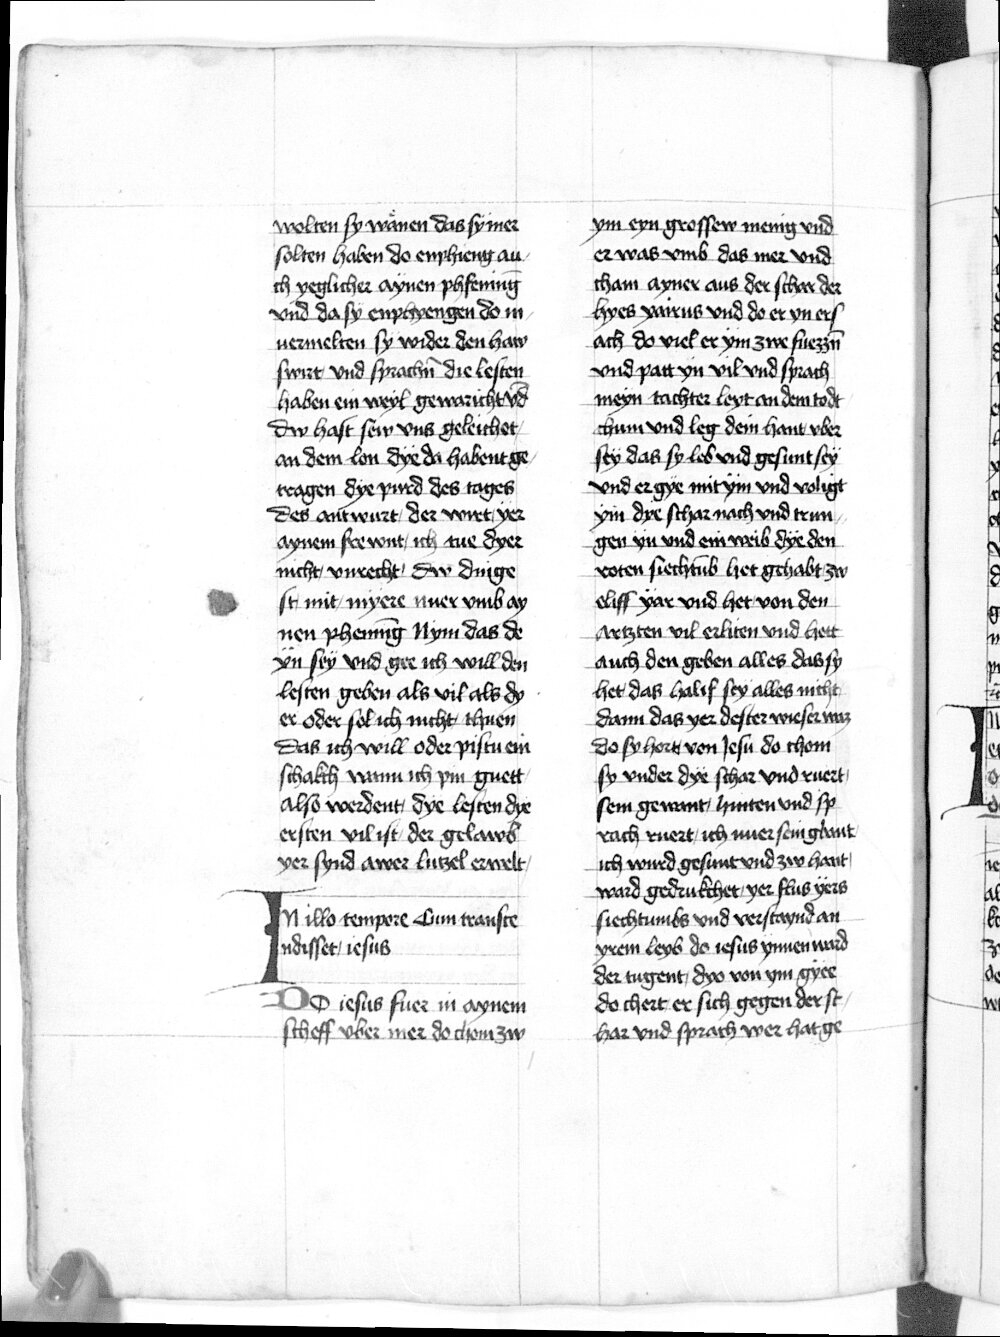 wolten sy wänen das sy mer
solten haben do enphieng au
ch yeglicher aynen phfening̅
vnd da sy enphyengen do m
vermelten sy wider den haw
swirt vnd sprachn̅ die lesten
haben ein weyl gewaricht vd̅
dw hast sew vns geleichet
an dem lon dye da habent ge
tragen dye purd des tages
des antwurt der wirt yer
aynem frewnt ich tue dyer
nicht vnrecht dw dinge
st mit myere nuer vmb ay
nen phennig̅ Nym das de
yn sey vnd gee ich will den
lesten geben als vil als dy
er oder sol ich nicht thuen
das ich will oder pistu ein
schalkch wann ich pin guett
also werdent dye lesten dye
ersten vil ist der gelawb
yer synd awer lutzel erwelt
IN illo tempore Cum transce
ndisset iesus
DO iesus fuer in aynem
scheff vber mer do chom zw
ym eyn grossew menig vnd
er was vmb das mer vnd
cham ayner aus der schar der
hyes yairus vnd do er yn ers
ach do viel er ym zwe fuezzn̅
vnd patt yn vil vnd sprach
meyn tachter leyt an dem todt
chum vnd leg dein hant vber
sey das sy leb vnd gesunt sey
vnd er gye mit ym vnd voligt
ym dye schar nach vnd trun
gen yn vnd ein weib dye den
roten siechtub̅ het gehabt zw
eliff yar vnd het von den
artzten vil erliten vnd hett
auch den geben alles das sy
het das halif sey alles nicht
dann das yer dester wieser waz
do sy hort von Jesu do chom
sy vnder dye schar vnd ruert
sein gewant hinten vnd sp
rach ruert ich nuer sein gbant
ich wurd gesunt vnd zw hant
ward gedrukchet yer flus yers
siechtumbs vnd verstaynd an
yrem leyb do iesus ynnen ward
der tugent dyo von ym gyee
do chert er sich gegen der st
har vnd sprach wer hat ge